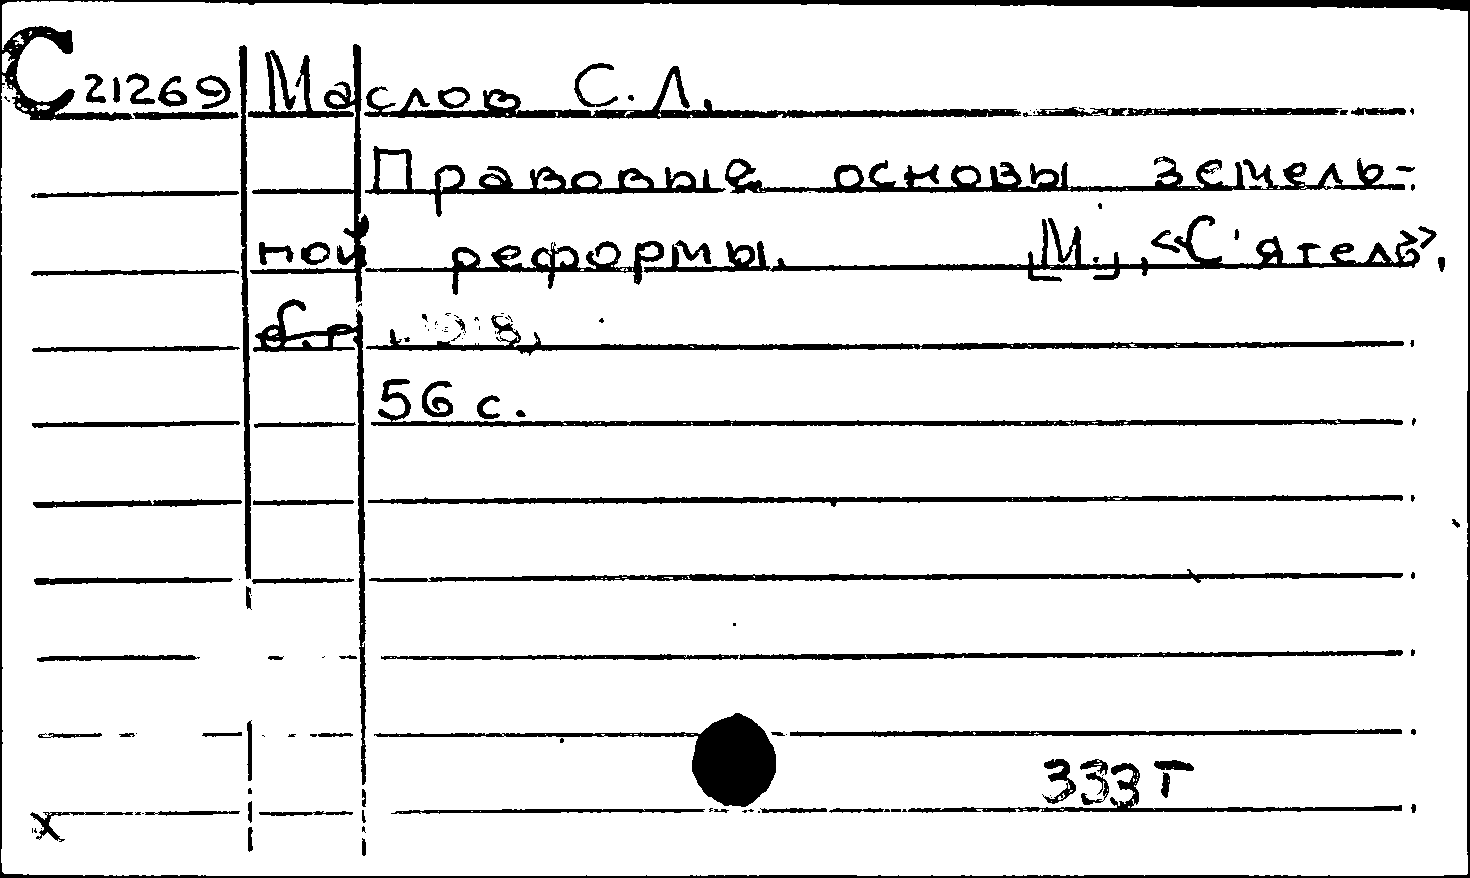 С 21269 Маслов С. Л.
Правовые основы земель-
ной реформы. [М.], «С'ятель»,
б.г. 1918,
56 с.
333Т
х